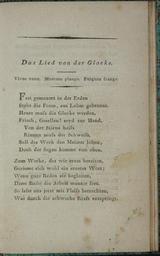 Das Lied von der Glocke.
Vivos voco. Mortuos plango. Fulgura frango.
Fest gemauert in der Erden
Steht die Form, aus Lehm gebrannt.
Heute muss die Glocke werden,
Frisch, Gesellen! seyd zur Hand.
Von der Stirne heiss
Rinnen muss der Schweiss,
Soll das Werk den Meister loben,
Doch der Segen kommt von oben.
Zum Werke, das wir ernst bereiten,
Geziemt sich wohl ein ernstes Wort;
Wenn gute Reden sie begleiten,
Dann fliesst die Arbeit munter fort.
So lasst uns jetzt mit Fleiss betrachten,
Was durch die schwache Kraft entspringt,